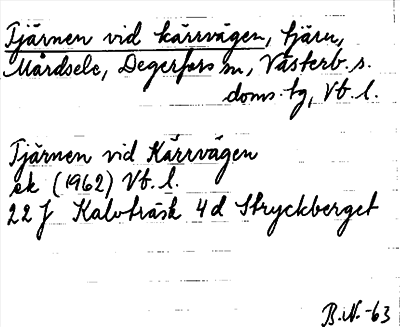 Tjärnen vid kärrvägen, tjärn,
Mårdsele, Degerfors sn, Västerb. s.
doms. tg, Vb. l.
Tjärnen vid Kärrvägen
ek (1962) Vb. l.
22 J Kalvträsk 4 d Stryckberget
B.N.-63